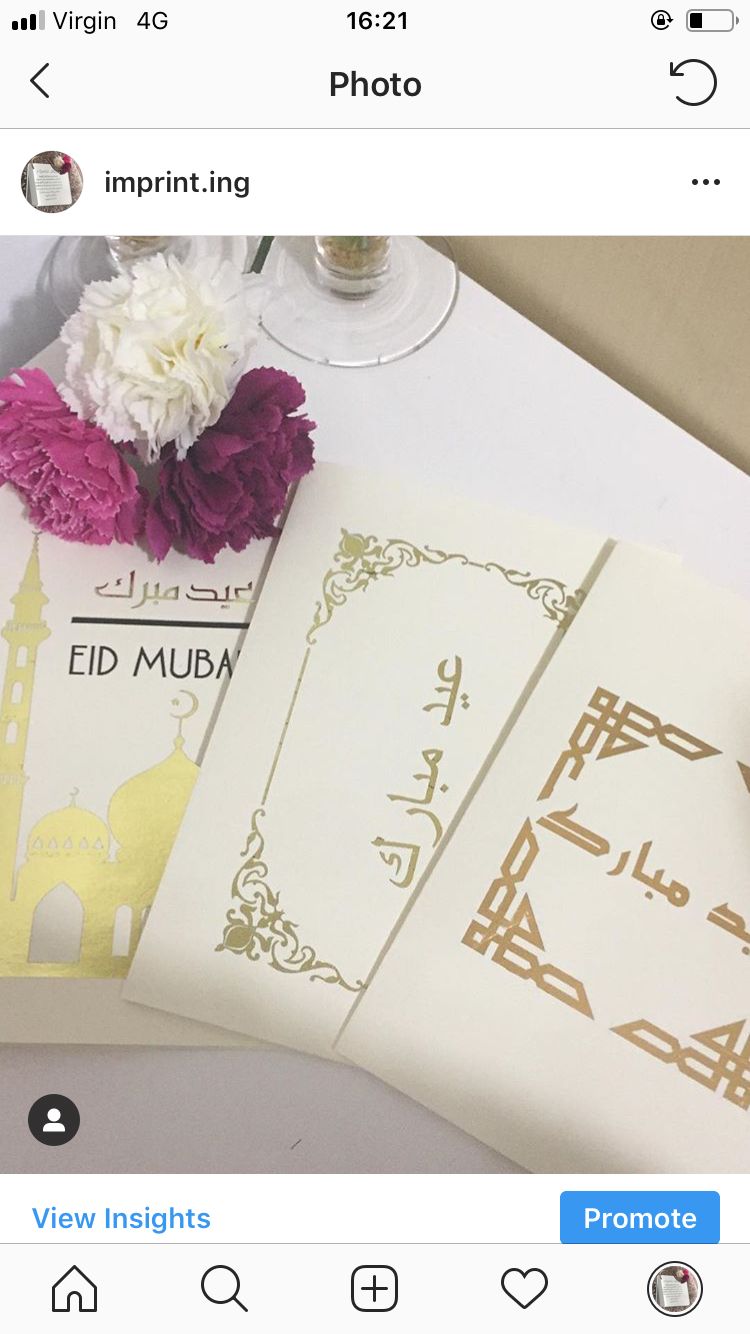 Virgin 4G
16:21
Photo
imprint.ing
عيد مبرك
EID MUBA
عيد مبارك
مبارك
View Insights
Promote